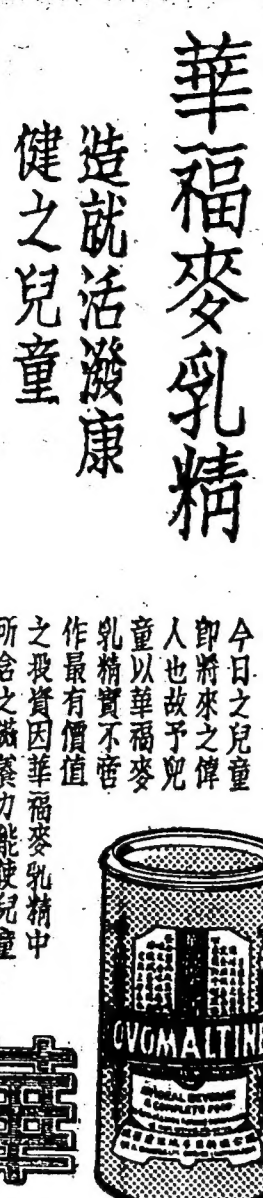 華福麥乳精
造就活潑康
健之兒童
今日之兒童
卽將來之偉
人也故予兒
童以華福麥
乳精實不啻
作最有價值
之投資因華福麥乳精中
所含之滋養力能使兒童
OVOMALTINE
COMPLETE FOOD